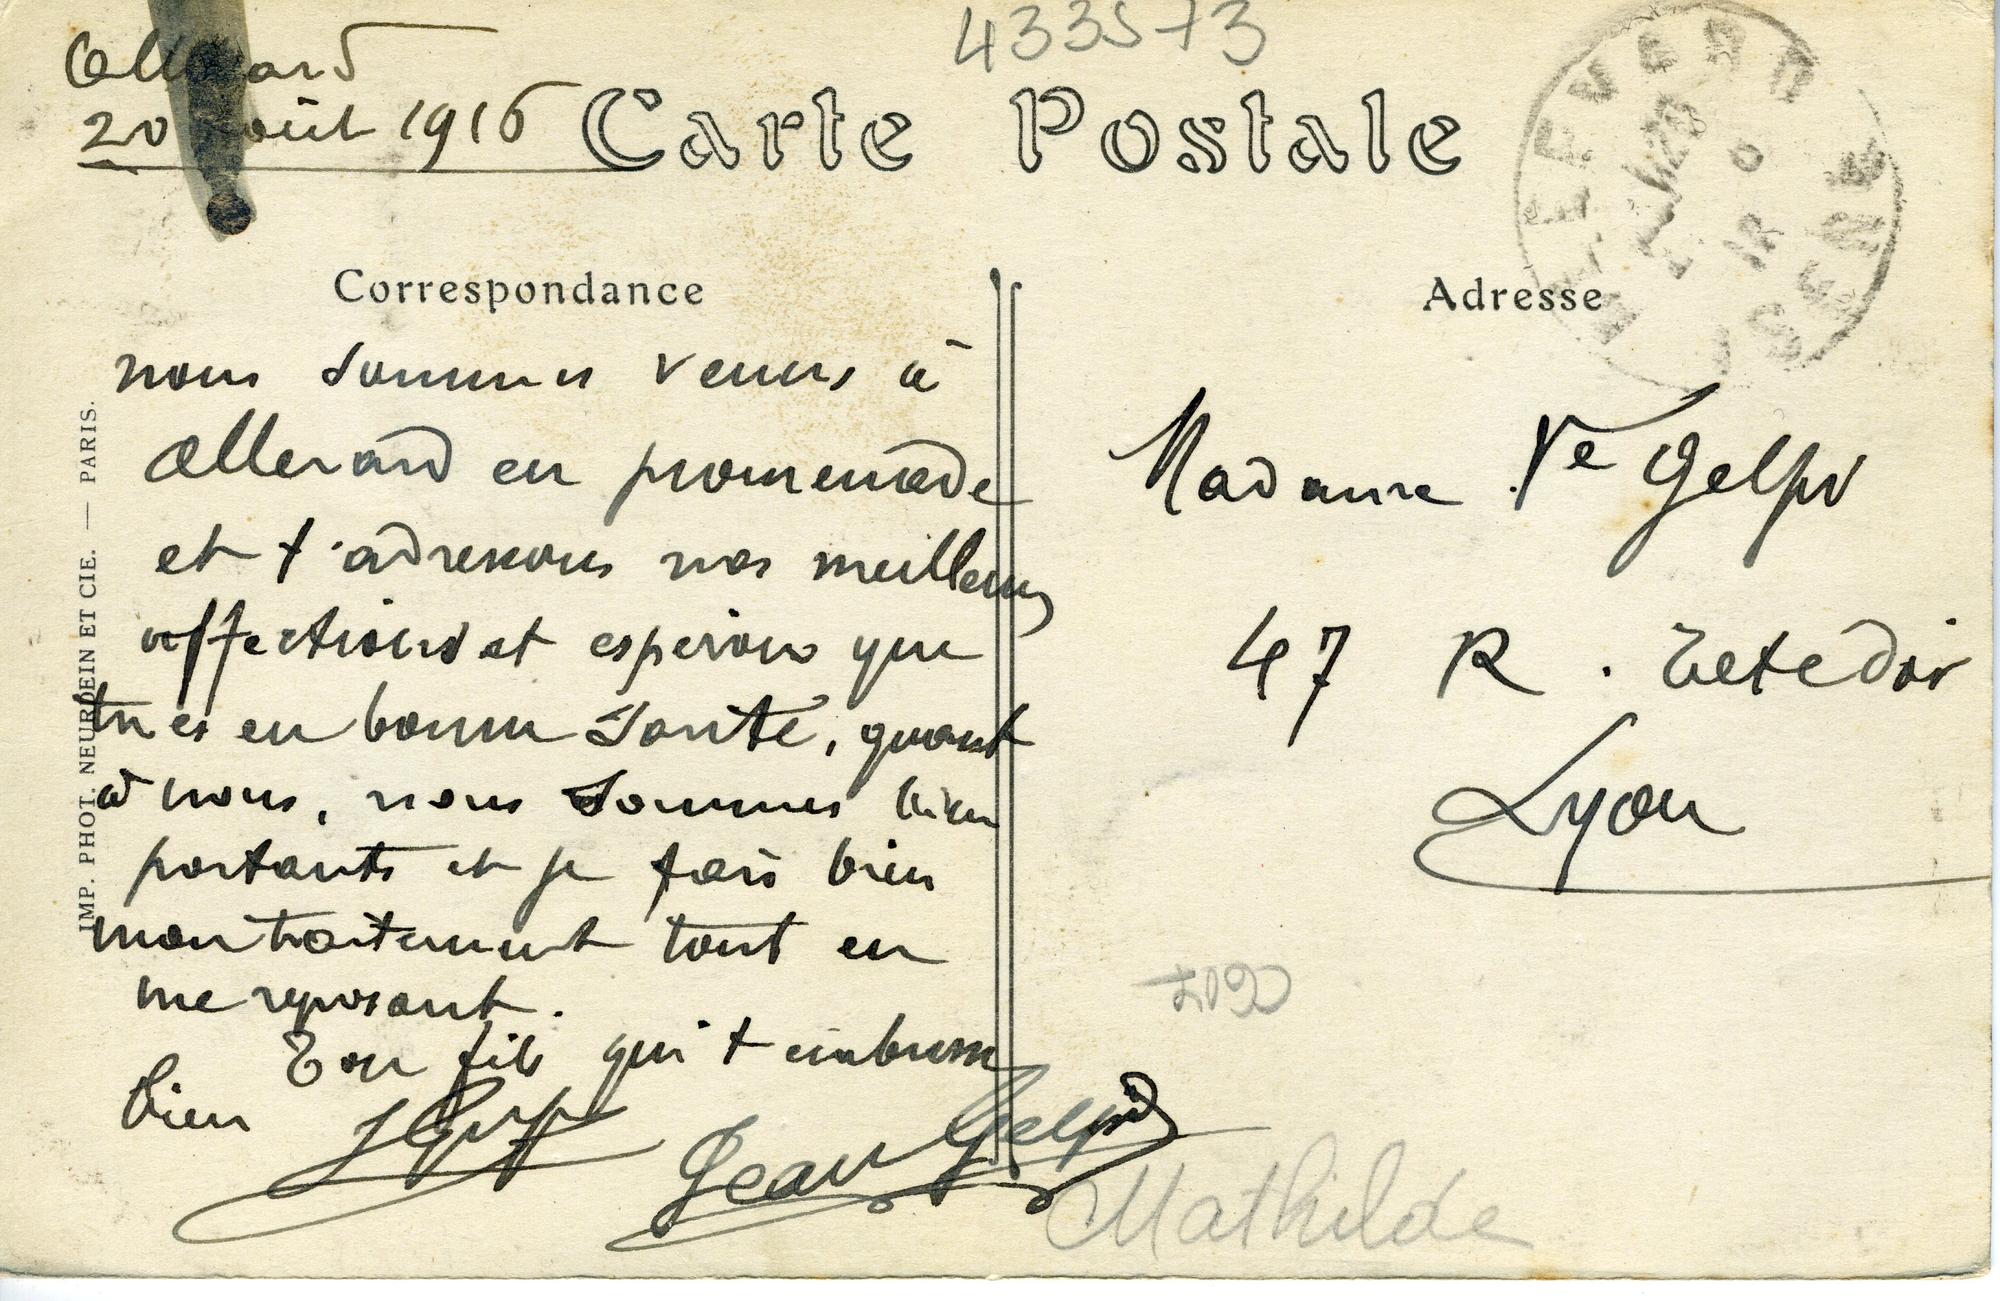 433573
Allevard
20 Août 1916
Carte Postale
ALLEVARD
ISERE
Correspondance
Adresse
nous sommes venus à
Allevard en promenade
et t'adressons nos meilleurs
affections et esperons que
tu es en bonne santé, quant
à nous, nous sommes bien
portants et je fais bien
mon traitement tout en
me reposant.
Ton fils qui t'embrasse
bien
Jean Gelpi
Madame Ve Gelpi
47 R. Tete d'or
Lyon
Mathilde
IMP. PHOT. NEURDEIN ET CIE. — PARIS.